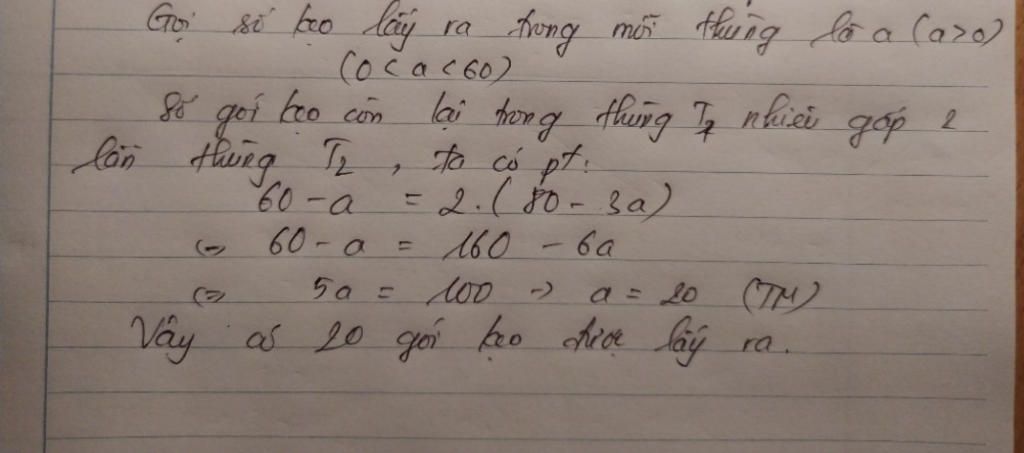 Gọi số kẹo lấy ra trong mỗi thùng là a (a>0)
(0 < a < 60)
Số gói kẹo còn lại trong thùng T1 nhiều gấp 2
lần thùng T2 , ta có pt:
60 - a = 2.(80 - 3a)
<=> 60 - a = 160 - 6a
<=> 5a = 100 -> a = 20 (TM)
Vậy có 20 gói kẹo được lấy ra.